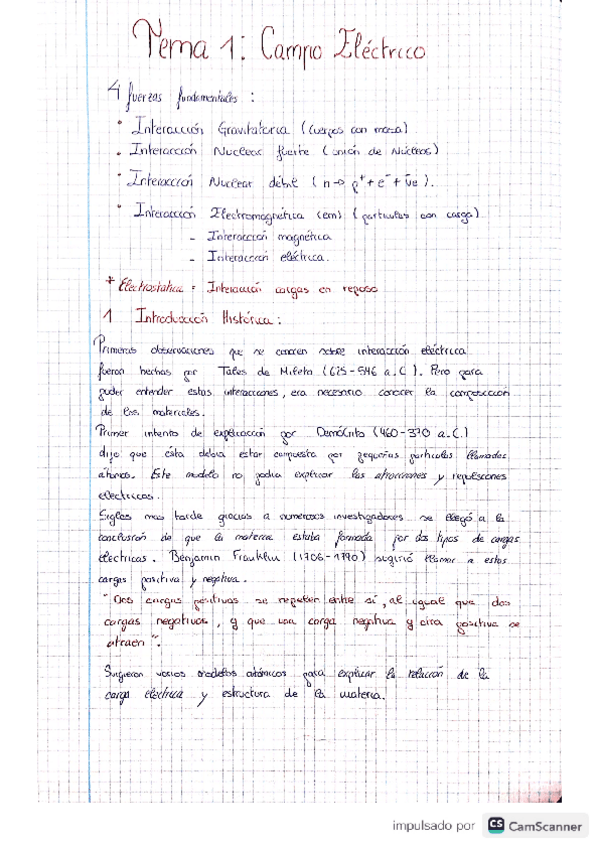 Tema 1: Campo Eléctrico
4 fuerzas fundamentales :
• Interacción Gravitatoria (cuerpos con masa)
• Interacción Nuclear fuerte (unión de Núcleos)
• Interacción Nuclear débil ( n → p⁺ + e⁻ + ν̄e ).
• Interacción Electromagnética (em) (partículas con carga)
- Interacción magnética
- Interacción eléctrica.
* Electrostática = Interacción cargas en reposo
1 Introducción Histórica :
Primeras observaciones que se conocen sobre interacción eléctrica
fueron hechas por Tales de Mileto (625-546 a.C). Pero para
poder entender estas interacciones, era necesario conocer la composición
de los materiales.
Primer intento de explicación por Demócrito (460-370 a.C.)
dijo que ésta debía estar compuesta por pequeñas partículas llamadas
átomos. Este modelo no podía explicar las atracciones y repulsiones
eléctricas.
Siglos mas tarde gracias a numerosos investigadores se llegó a la
conclusión de que la materia estaba formada por dos tipos de cargas
eléctricas. Benjamin Franklin (1706-1790) sugirió llamar a estas
cargas positiva y negativa.
" Dos cargas positivas se repelen entre sí, al igual que dos
cargas negativas, y que una carga negativa y otra positiva se
atraen ".
Surgieron varios modelos atómicos para explicar la relación de la
carga eléctrica y estructura de la materia.
impulsado por CS CamScanner